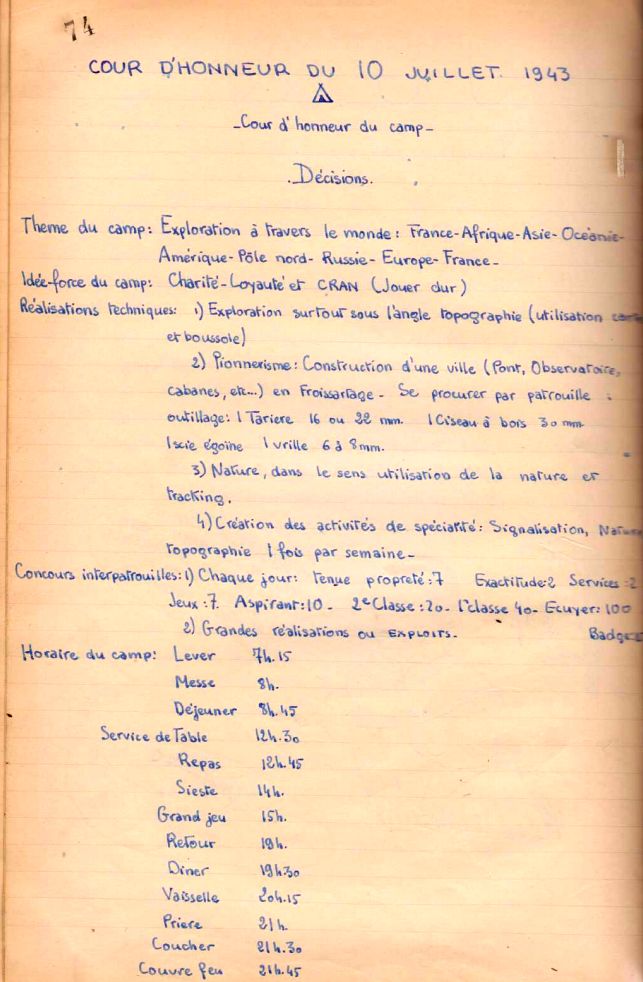 74
COUR D'HONNEUR DU 10 JUILLET. 1943
_Cour d'honneur du camp_
.Décisions.
Theme du camp: Exploration à travers le monde: France-Afrique-Asie-Océanie-
Amérique-Pôle nord-Russie-Europe-France_
Idée-force du camp: Charité-Loyauté et CRAN (Jouer dur)
Réalisations techniques: 1) Exploration surtout sous l'angle topographie (utilisation carte
et boussole)
2) Pionnerisme: Construction d'une ville (Pont, Observatoire,
cabanes, etc...) en Froissartage_ Se procurer par patrouille :
outillage: 1 Tariere 16 ou 22 mm. 1 Ciseau à bois 30 mm
1 scie égoïne 1 vrille 6 à 8mm.
3) Nature, dans le sens utilisation de la nature et
tracking.
4) Création des activités de spécialité: Signalisation, Nature
topographie 1 fois par semaine_
Concours interpatrouilles: 1) Chaque jour: tenue propreté: 7 Exactitude: 2 Services: 2
Jeux: 7. Aspirant: 10_ 2e Classe: 20_ 1e classe 40_ Ecuyer: 100
2) Grandes réalisations ou EXPLOITS_ Badge
Horaire du camp: Lever 7h.15
Messe 8h.
Déjeuner 8h.45
Service de Table 12h.30
Repas 12h.45
Sieste 14h.
Grand jeu 15h.
Retour 19h.
Diner 19h30
Vaisselle 20h.15
Priere 21h.
Coucher 21h.30
Couvre feu 21h.45